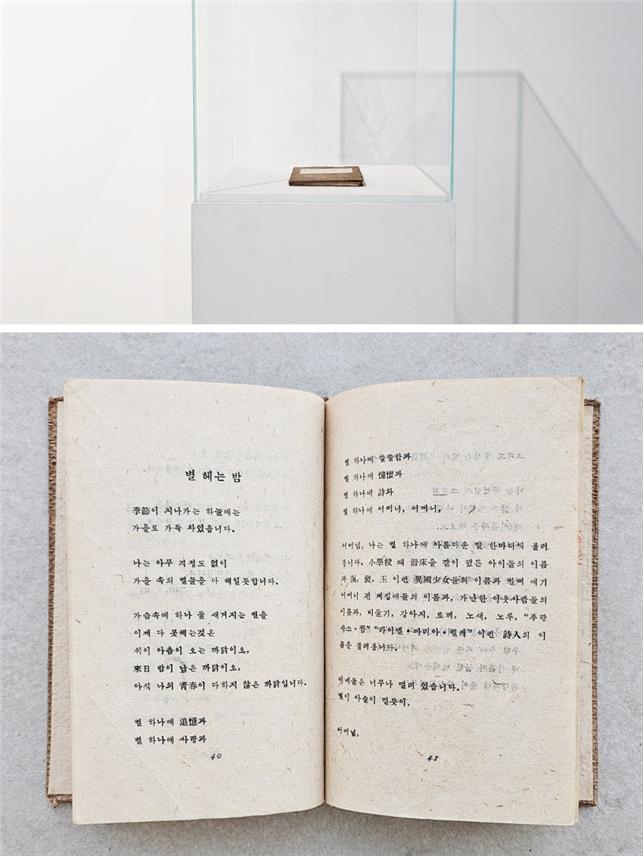 별 헤는 밤
季節이 지나가는 하늘에는
가을로 가득 차있습니다.
나는 아무 걱정도 없이
가을 속의 별들을 다 헤일듯합니다.
가슴속에 하나 둘 새겨지는 별을
이제 다 못헤는것은
쉬이 아츰이 오는 까닭이오,
來日 밤이 남은 까닭이오,
아직 나의 青春이 다하지 않은 까닭입니다.
별 하나에 追憶과
별 하나에 사랑과
40
별 하나에 쓸쓸함과
별 하나에 憧憬과
별 하나에 詩와
별 하나에 어머니, 어머니,
어머님, 나는 별 하나에 아름다운 말 한마디식 불러
봅니다. 小學校 때 冊床을 같이 했든 아이들의 이름
과 佩, 鏡, 玉 이런 異國少女들의 이름과 벌써 애기
어머니 된 계집애들의 이름과, 가난한 이웃사람들의
이름과, 비둘기, 강아지, 토끼, 노새, 노루, “푸랑
“라이넬·마리아·릴케” 이런 詩人의 이
름을 불러봅니다.
이네들은 너무나 멀리 있습니다.
별이 아슬이 멀듯이,
어머님,